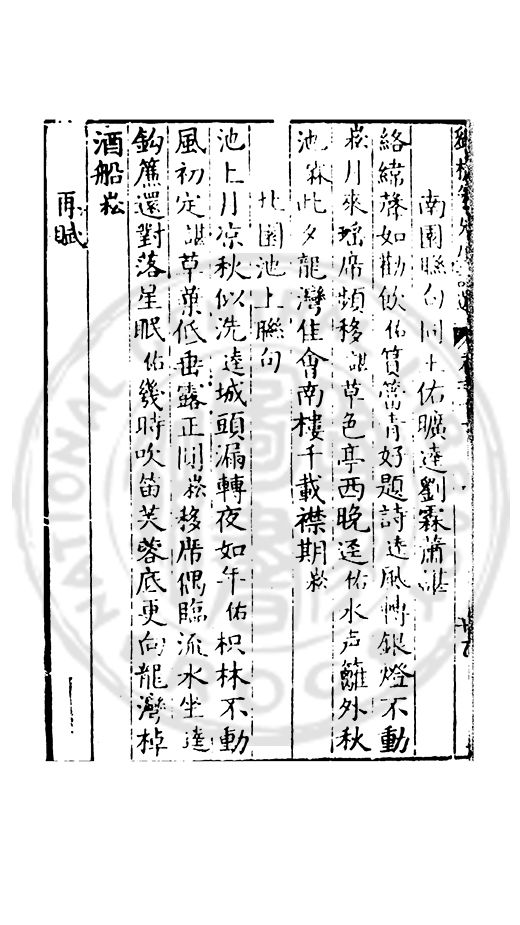 南園聯句同王佑曠逵劉霖蕭諶
絡緯聲如勸飲佑篔簹青好題詩逵風轉銀燈不動
崧月來瑤席頻移諶草色亭西晚逕佑水声籬外秋
池霖此夕龍灣佳會南樓千載襟期崧
北園池上聯句
池上月凉秋似洗逵城頭漏轉夜如年佑枳林不動
風初定諶草葉低垂露正圓崧移席偶臨流水坐逵
鈎簾還對落星眠佑幾時吹笛芙蓉底更向龍灣棹
酒船崧
再賦
NATIONAL